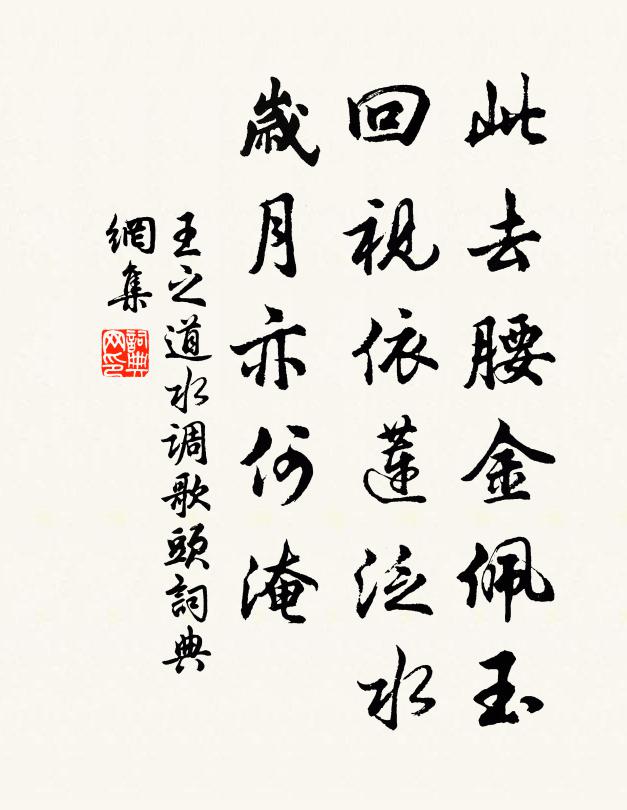 此去腰金佩玉
回視依蓮泛水
歲月亦何淹
王之道水调歌頭詞典
網集
詞典网印